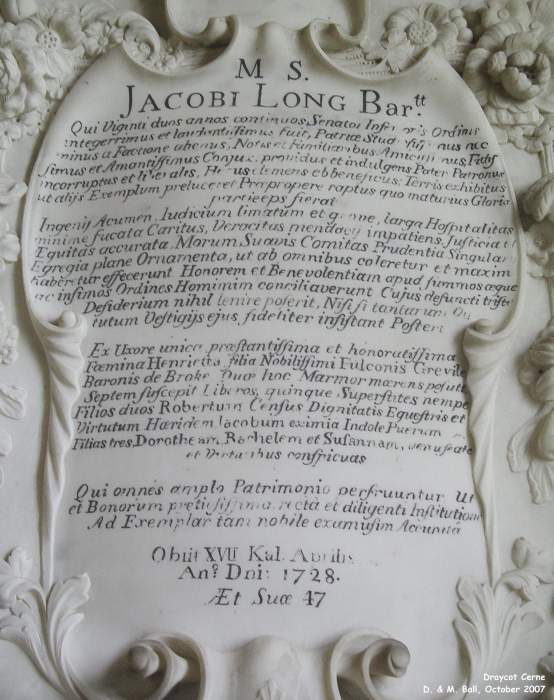 M S.
JACOBI LONG Bar.tt
Qui Viginti duos annos continuos, Senator Inferioris Ordinis
integerrimus et laudentissimus fuit, Patriæ nec
minus a Factione alienus, Notis et Familiaribus Fidis
simus et Amantissimus Conjux, providus et indulgens Pater Patronus
incorruptus et liberales, clemens et beneficus; Terris exhibitus
ut alijs Exemplum præluceret Præpropere raptus quo maturius Gloriæ
particeps fierat
Ingenij Acumen, Iudicium limatum et larga Hospitalitas
minime fucata Caritus, Veracitas mendacij impatiens, Justicia et
Equitas accurata, Morum Suavis Comitas Prudentia Singula
Egregia plane Ornamenta, ut ab omnibus coleretur et maxim
haberetur effecerunt Honorem et Benevolentiam apud summos æque
ac infimos Ordines Hominim conciliaverunt Cujus defuncti triste
Desiderium nihil lenire poserit, Nisi si tantarum
tutum Vestigijs ejus fideliter insistant Posteri
Ex Uxore unica præstantissima et honoratissima
Fœmina Henrietta filia Nobilissimi Fulconis Grevile
Baronis de Broke Quæ hoc Marmor mœrens posuit
Septem suscepit Liberos, quinque Superstites nempe
Filios duos Robertum Census Dignitatis Equestris et
Virtutum Hæridem Jacobum eximia Indole Puerum
Filias tres, Dorotheam, Rachelem et Susannam, venustate
et Virtutibus conspicuas
Qui omnes amplo Patrimonio perfruuntur Ut
et Bonorum pretiosissima, recta et diligenti Institutione
Ad Exemplar tam nobile examussim
Obiit XVII Kal. Aprilis
An.o Dni: 1728.
Æt Suæ 47
Draycot Cerne
D. & M. Ball, October 2007